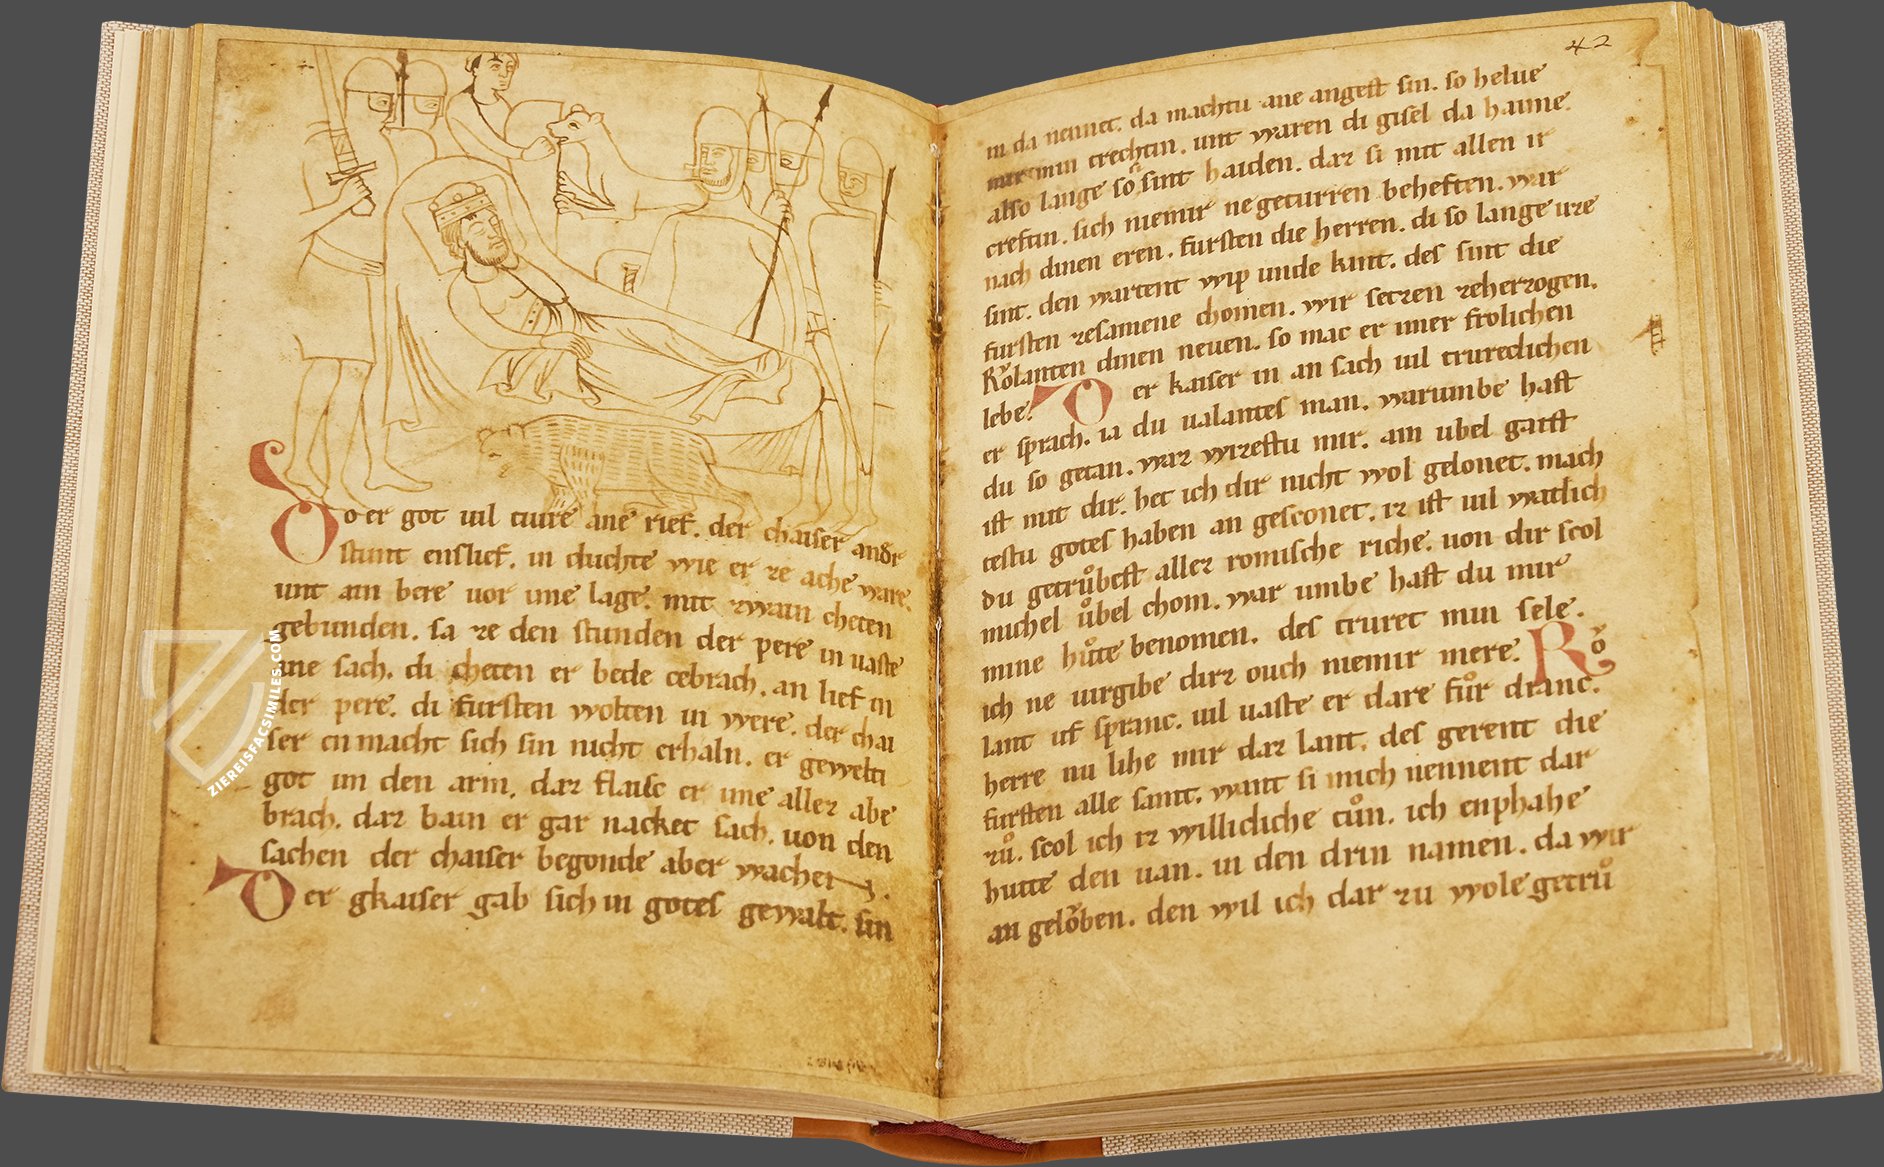 Do er got uil tiure ane rief. der chaiser andr
stunt enslief. in duchte wie er ze ache ware.
unt ain bere uor ime lage. mit zwain cheten
gebunden. sa ze den stunden der pere in uaste
ane sach. di cheten er bede cebrach. an lief in
der pere. di fursten wolten in were. der chai
ser en macht sich sin nicht erhaln. er gewelti
got im den arm. daz flaisc er ime allez abe
brach. daz bain er gar nacket sach. uon den
sachen der chaiser begonde aber wachen.
Der gkaiser gab sich in gotes gewalt. sin
ZIEREISFACSIMILES.COM
42
in da nennet. da machtu ane angest sin. so helue
mir min trechtin. unt waren di gisel da haime.
also lange so sint haiden. daz si mit allen ir
creftin. sich niemir ne geturren beheften. war
nach dinen eren. fursten die herren. di so lange uze
sint. den wartent wip unde kint. des sint die
fursten zesamene chomen. wir setzen zeherzogen.
Rolanten dinen neuen. so mac er imer frolichen
lebe. Der kaiser in an sach uil trureclichen
er sprach. ia du ualantes man. warumbe hast
du so getan. waz wizestu mir. ain ubel gaist
ist mit dir. het ich dir nicht wol gelonet. mach
testu gotes haben an gesconet. iz ist uil watlich
du getrůbest allez romische riche. uon dir scol
michel ůbel chom. war umbe hast du mir
mine hůte benomen. des truret min sele.
ich ne uirgibe dirz ouch niemir mere. Rǒ
lant uf spranc. uil uaste er dare fůr dranc.
herre nu lihe mir daz lant. des gerent die
fursten alle samt. want si mich nennent dar
zů. scol ich iz willicliche tůn. ich enphahe
hutte den uan. in den drin namen. da wir
an gelǒben. den wil ich dar zu wole getrů